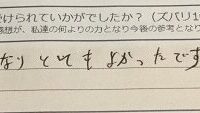 けられていかがでしたか？（ズバリ1
感想が、私達の何よりの力となり今後の参考となり
なりとてもよかったです